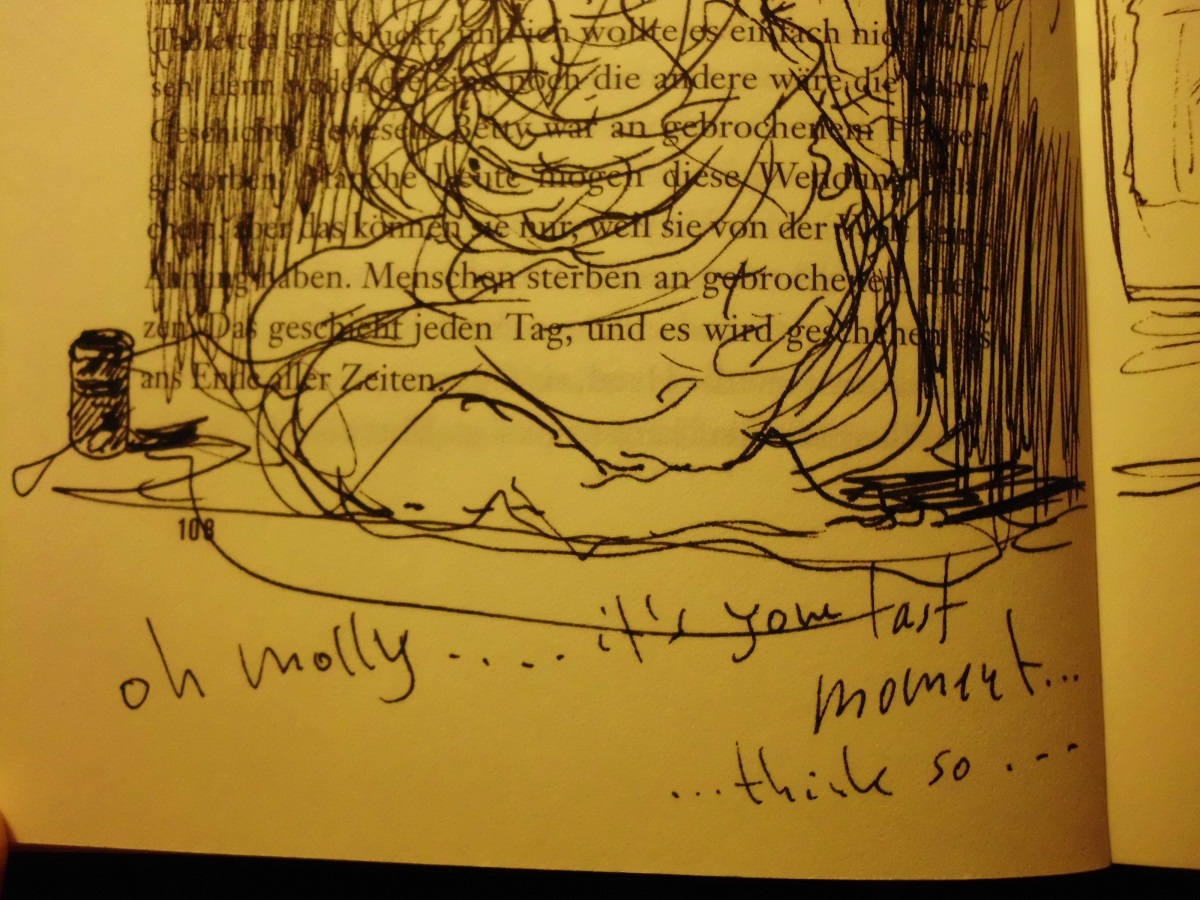 Tabletten geschluckt, und ich wollte es einfach nicht wis-
sen, denn weder die eine noch die andere wäre die wahre
Geschichte gewesen. Betty war an gebrochenem Herzen
gestorben. Manche Leute mögen diese Wendung belä-
cheln, aber das können sie nur, weil sie von der Welt keine
Ahnung haben. Menschen sterben an gebrochenen Her-
zen. Das geschieht jeden Tag, und es wird geschehen bis
ans Ende aller Zeiten.
108
oh molly ..... it's your last
moment...
...think so ...